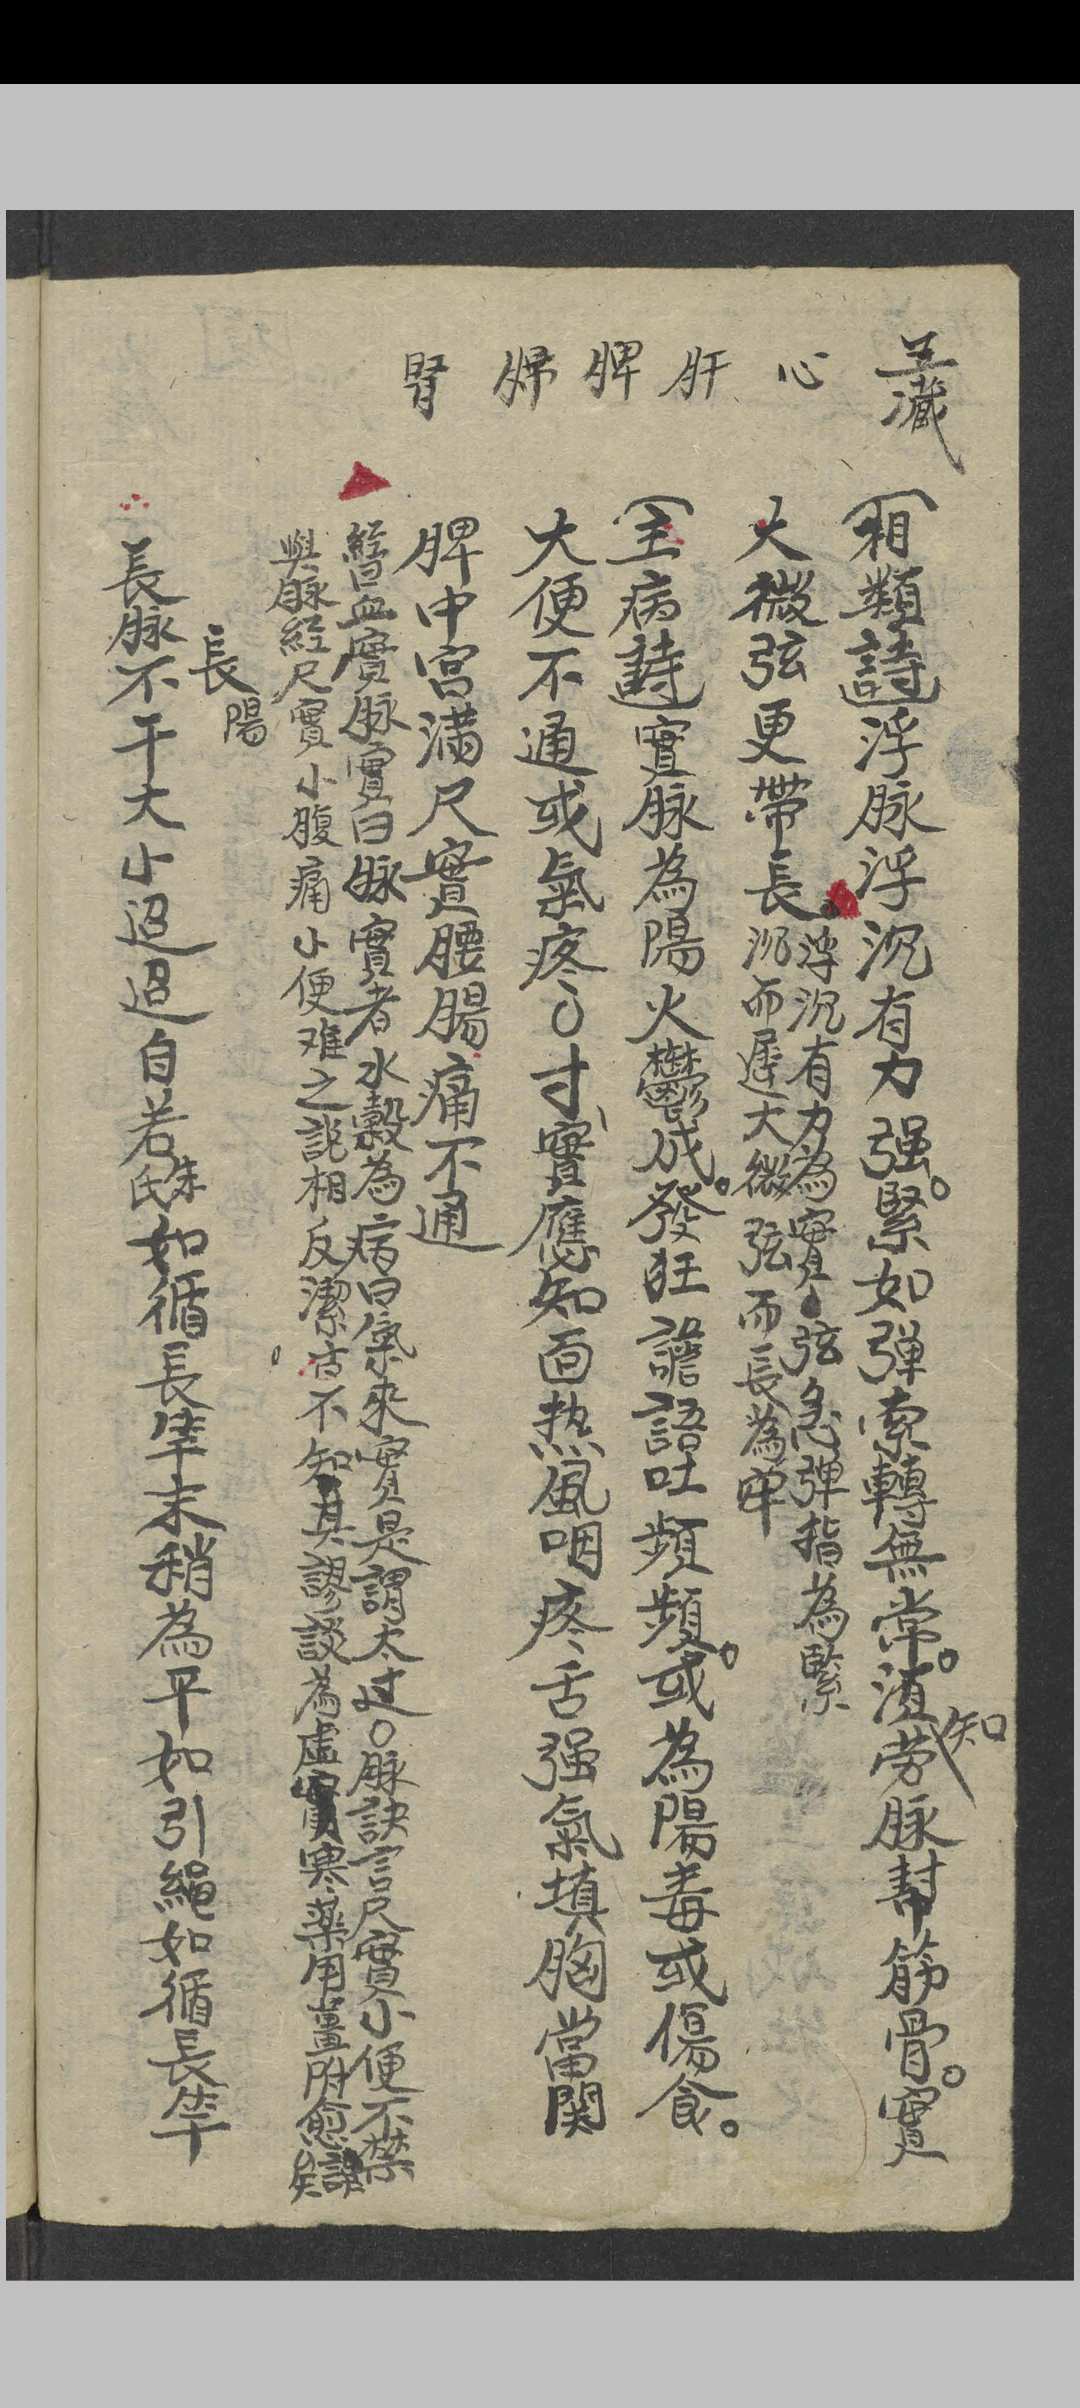 五臓
心 肝 脾 肺 腎
相類詩浮脉浮沉有力强。緊如弹索轉無常。湏知劳脉幇筋骨。實
大微弦更帶長。浮沉有力為實弦急弹指為緊
沉而遅大微弦而長為牢
主病詩實脉為陽火鬱成。發狂譫語吐頻頻。或為陽毒或傷食。
大便不通或氣疼〇寸實應知面热風咽疼舌强氣填胸當関
脾中宮滿尺實腰腸痛不通
經曰血實脉實曰脉實者水穀為病曰氣來實是謂太过〇脉訣言尺實小便不禁
與脉經尺實小腹痛小便难之說相反潔古不知其謬談為虛寒藥用薑附愈誤矣
長 陽
長脉不干大小迢迢自若朱氏如循長竿末稍為平如引繩如循長竿